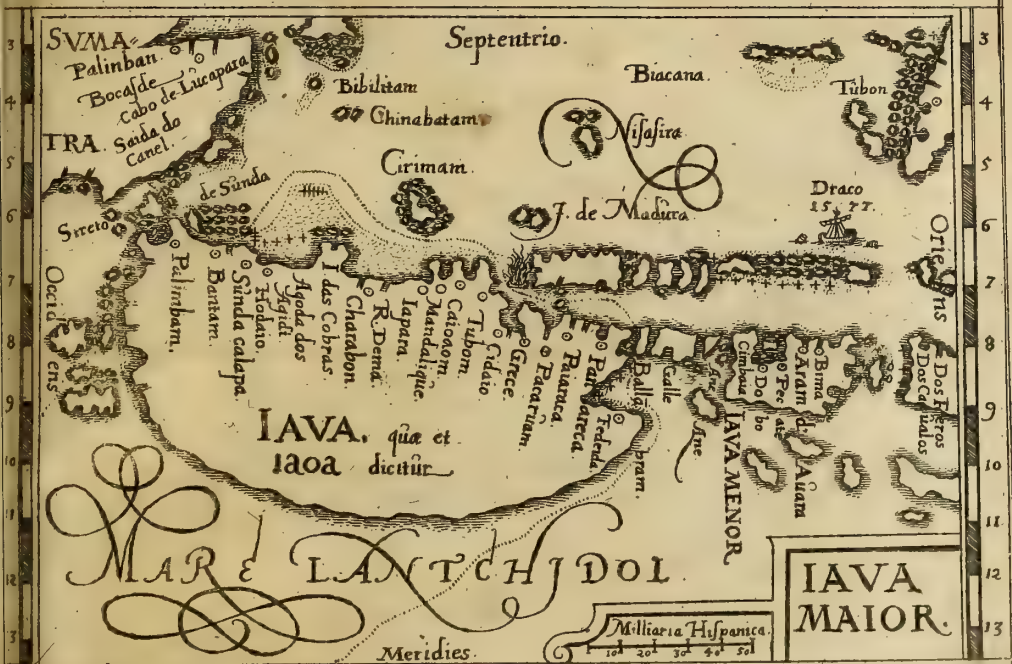 SVMA=
TRA.
Palinban
Bocas de
Cabo de Lûcapara
Saida do
Canel.
Septentrio.
Bibilitam
Chinabatam
Biacana.
Nisasira
Tûbon
Cirimam.
J. de Madûra
Draco
1577.
Streto
de Sûnda
Occidens
Oriens
Palimbam.
Bantam.
Sûnda calapa
Hodaio
Agidi
Agoda dos
I das Cobras.
Charabon.
R. Dema
Iapara
Mandaliqûe.
Caioaom.
Tûbom.
Cidaio
Grece.
Pacariûm.
Paiarûca
Fedenda
Ballabram.
Galle
Ane
Cimbaûa
Aram
Bima
Aûara
Dos Feros
Dos Caûalos
IAVA MENOR
IAVA. qûæ et
Iaoa dicitûr
MARE LANTCHIDOL
Meridies.
Milliaria Hispanica.
10 20 30 40 50
IAVA
MAIOR.
3 4 5 6 7 8 9 10 11 12 13
3 4 5 6 7 8 9 10 11 12 13